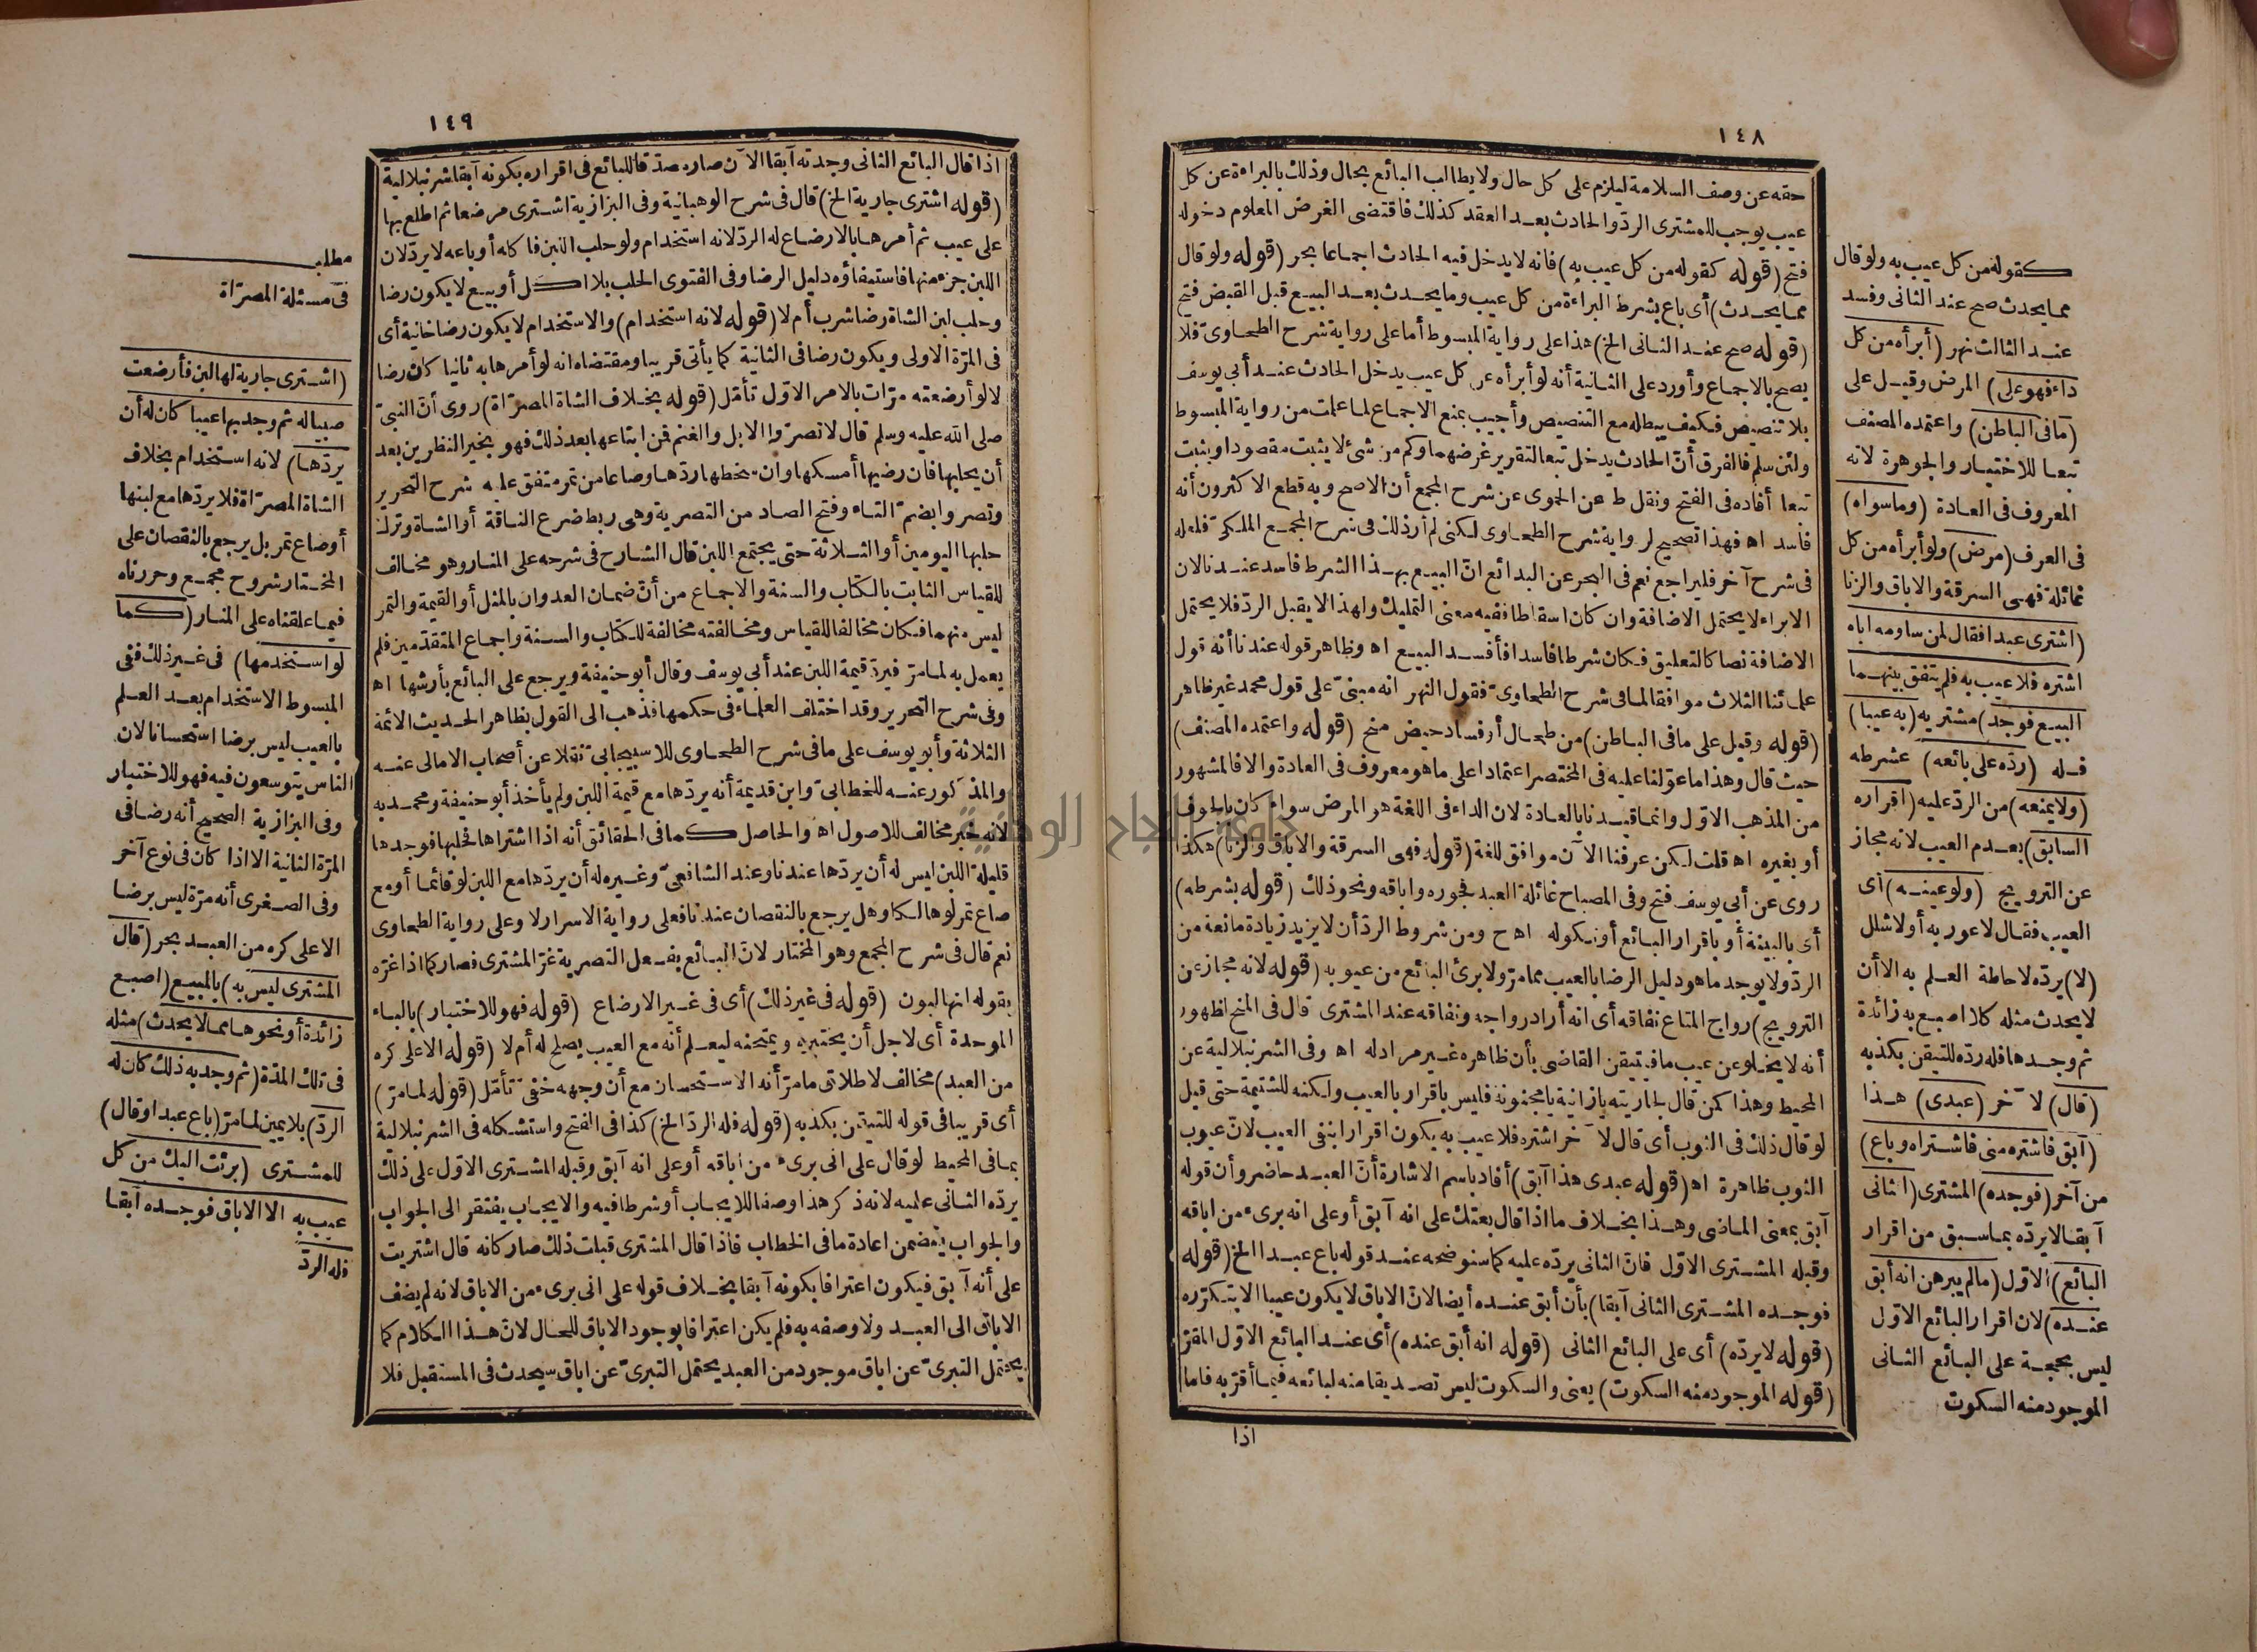 ١٤٨
حقه عن وصف السلامة ليلزم على كل حال ولا يطالب البائع بحال وذلك بالبراءة عن كل
عيب يوجب للمشترى الردّ والحادث بعد العقد كذلك فاقتضى الغرض المعلوم دخوله
فتح (قوله كقوله من كل عيب به) فانه لا يدخل فيه الحادث اجماعا بحر (قوله ولو قال
مما يحدث) أى باع بشرط البراءة من كل عيب وما يحدث بعد البيع قبل القبض فتح
(قوله صح عند الثانى الخ) هذا على رواية المبسوط أما على رواية شرح الطحاوىّ فلا
يصح بالاجماع وأورد على الثانية أنه لو أبرأه عن كل عيب يدخل الحادث عند أبى يوسف
بلا تنصيص فكيف يبطله مع التنصيص وأجيب بمنع الاجماع لما علمت من رواية المبسوط
ولئن سلم فالفرق أنّ الحادث يدخل تبعا لتقرير غرضهما وكم من شئ لا يثبت مقصودا ويثبت
تبعا أفاده فى الفتح ونقل ط عن الحموى عن شرح المجمع أن الاصح وبه قطع الاكثرون أنه
فاسد اه فهذا تصحيح لرواية شرح الطحاوى لكنى لم أر ذلك فى شرح المجمع الملكىّ فلعله
فى شرح آخر فليراجع نعم فى البحر عن البدائع انّ البيع بهذا الشرط فاسد عندنا لان
الابراء لا يحتمل الاضافة وان كان اسقاطا ففيه معنى التمليك ولهذا لا يقبل الردّ فلا يحتمل
الاضافة نصا كالتعليق فكان شرطا فاسدا فأفسد البيع اه وظاهر قوله عندنا أنه قول
علمائنا الثلاث موافقا لما فى شرح الطحاوىّ فقول النهر انه مبنىّ على قول محمد غير ظاهر
(قوله وقيل على ما فى الباطن) من طحال أو فساد حيض منح (قوله واعتمده المصنف)
حيث قال وهذا ما عوّلنا عليه فى المختصر اعتمادا على ما هو معروف فى العادة والا فالمشهور
من المذهب الاوّل وانما قيدنا بالعادة لان الداء فى اللغة هو المرض سواء كان بالجوف
أو بغيره اه قلت لكن عرفنا الآن موافق للغة (قوله فهى السرقة والاباق والزنا) هكذا
روى عن أبى يوسف فتح وفى المصباح غائلة العبد فجوره واباقه ونحو ذلك (قوله بشرطه)
أى بالبينة أو باقرار البائع أو نكوله اه ح ومن شروط الردّ أن لا يزيد زيادة مانعة من
الردّ ولا يوجد ما هو دليل الرضا بالعيب مما مرّ ولا برئ البائع من عيوبه (قوله لانه مجاز عن
الترويج) رواج المتاع نفاقه أى انه أراد رواجه ونفاقه عند المشترى قال فى المنح لظهور
أنه لا يخلو عن عيب ما فيتيقن القاضى بأن ظاهره غير مراد له اه وفى الشرنبلالية عن
المحيط وهذا كمن قال لجاريته يا زانية يا مجنونة فليس باقرار بالعيب ولكنه للشتيمة حتى قيل
لو قال ذلك فى الثوب أى قال لآخر اشتره فلا عيب به يكون اقرارا بنفى العيب لانّ عيوب
الثوب ظاهرة اه (قوله عبدى هذا آبق) أفاد باسم الاشارة أنّ العبد حاضر وأن قوله
آبق بمعنى الماضى وهذا بخلاف ما اذا قال بعتك على انه آبق أو على انه برىء من اباقه
وقبله المشترى الاوّل فانّ الثانى يردّه عليه كما سنوضحه عند قوله باع عبدا الخ (قوله
فوجده المشترى الثانى آبقا) بأن أبق عنده أيضا لانّ الاباق لا يكون عيبا الا بتكرّره
(قوله لا يردّه) أى على البائع الثانى (قوله انه أبق عنده) أى عند البائع الاوّل المقرّ
(قوله الموجود منه السكوت) يعنى والسكوت ليس تصديقا منه لبائعه فيما أقرّ به فاما
اذا
كقوله من كل عيب به ولو قال
مما يحدث صح عند الثانى وفسد
عند الثالث نهر (أبرأه من كل
داء فهو على) المرض وقيل على
(ما فى الباطن) واعتمده المصنف
تبعا للاختيار والجوهرة لانه
المعروف فى العادة (وما سواه)
فى العرف (مرض) ولو أبرأه من كل
غائلة فهى السرقة والاباق والزنا
(اشترى عبدا فقال لمن ساومه اياه
اشتره فلا عيب به فلم يتفق بينهما
البيع فوجد) مشتريه (به عيبا)
فله (ردّه على بائعه) بشرطه
(ولا يمنعه) من الردّ عليه (اقراره
السابق) بعدم العيب لانه مجاز
عن الترويج (ولو عينه) أى
العيب فقال لا عور به أو لا شلل
(لا) يردّه لاحاطة العلم به الا أن
لا يحدث مثله كلا اصبع به زائدة
ثم وجدها فله ردّه للتيقن بكذبه
(قال) لآخر (عبدى) هذا
(آبق فاشتره منى فاشتراه وباع)
من آخر (فوجده) المشترى (الثانى
آبقا لا يردّه بما سبق من اقرار
البائع) الاوّل (ما لم يبرهن انه أبق
عنده) لان اقرار البائع الاوّل
ليس بحجة على البائع الثانى
الموجود منه السكوت
١٤٩
اذا قال البائع الثانى وجدته آبقا الآن صار مصدّقا للبائع فى اقراره بكونه آبقا شرنبلالية
(قوله اشترى جارية الخ) قال فى شرح الوهبانية وفى البزازية اشترى مرضعا ثم اطلع بها
على عيب ثم أمرها بالارضاع له الردّ لانه استخدام ولو حلب اللبن فاكله أو باعه لا يردّ لان
اللبن جزء منها فاستيفاؤه دليل الرضا وفى الفتوى الحلب بلا اكل أو بيع لا يكون رضا
وحلب لبن الشاة رضا شرب أم لا (قوله لانه استخدام) والاستخدام لا يكون رضا خانية أى
فى المرّة الاولى ويكون رضا فى الثانية كما يأتى قريبا ومقتضاه انه لو أمرها به ثانيا كان رضا
لا لو أرضعته مرّات بالامر الاوّل تأمّل (قوله بخلاف الشاة المصرّاة) روى أنّ النبىّ
صلى الله عليه وسلم قال لا تصرّوا الابل والغنم فمن ابتاعها بعد ذلك فهو بخير النظرين بعد
أن يحلبها فان رضيها أمسكها وان سخطها ردّها وصاعا من تمر متفق عليه شرح التحرير
وتصروا بضم التاء وفتح الصاد من التصرية وهى ربط ضرع الناقة أو الشاة وترك
حلبها اليومين أو الثلاثة حتى يجتمع اللبن قال الشارح فى شرحه على المنار وهو مخالف
للقياس الثابت بالكتاب والسنة والاجماع من أنّ ضمان العدوان بالمثل أو القيمة والتمر
ليس منهما فكان مخالفا للقياس ومخالفته مخالفة للكتاب والسنة واجماع المتقدّمين فلم
يعمل به لما مرّ فيردّ قيمة اللبن عند أبى يوسف وقال أبو حنيفة ويرجع على البائع بأرشها اه
وفى شرح التحرير وقد اختلف العلماء فى حكمها فذهب الى القول بظاهر الحديث الائمة
الثلاثة وأبو يوسف على ما فى شرح الطحاوى للاسبيجابىّ نقلا عن أصحاب الامالى عنه
والمذكور عنه للخطابىّ وابن قدامة أنه يردّها مع قيمة اللبن ولم يأخذ أبو حنيفة ومحمد به
لانه خبر مخالف للاصول اه والحاصل كما فى الحقائق أنه اذا اشتراها فحلبها فوجدها
قليلة اللبن ليس له أن يردّها عندنا وعند الشافعىّ وغيره له أن يردّها مع اللبن لو قائما أو مع
صاع تمر لو هالكا وهل يرجع بالنقصان عندنا فعلى رواية الاسرار لا وعلى رواية الطحاوى
نعم قال فى شرح المجمع وهو المختار لانّ البائع بفعل التصرية غرّ المشترى فصار كما اذا غرّه
بقوله انها لبون (قوله فى غير ذلك) أى فى غير الارضاع (قوله فهو للاختبار) بالباء
الموحدة أى لاجل أن يختبره ويمتحنه ليعلم أنه مع العيب يصلح له أم لا (قوله الا على كره
من العبد) مخالف لاطلاق ما مرّ أنه الاستحسان مع أن وجهه خفىّ تأمّل (قوله لما مرّ)
أى قريبا فى قوله للتيقن بكذبه (قوله فله الردّ الخ) كذا فى الفتح واستشكله فى الشرنبلالية
بما فى المحيط لو قال على انى برىء من اباقه أو على انه آبق وقبله المشترى الاوّل على ذلك
يردّه الثانى عليه لانه ذكر هذا وصفا للايجاب أو شرطا فيه والايجاب يفتقر الى الجواب
والجواب يتضمن اعادة ما فى الخطاب فاذا قال المشترى قبلت ذلك صار كانه قال اشتريت
على أنه آبق فيكون اعترافا بكونه آبقا بخلاف قوله على انى برىء من الاباق لانه لم يضف
الاباق الى العبد ولا وصفه به فلم يكن اعترافا بوجود الاباق للحال لانّ هذا الكلام كما
يحتمل التبرىّ عن اباق موجود من العبد يحتمل التبرىّ عن اباق سيحدث فى المستقبل فلا
مطلب
فى مسئلة المصرّاة
(اشترى جارية لها لبن فأرضعت
صبيا له ثم وجد بها عيبا كان له أن
يردّها) لانه استخدام بخلاف
الشاة المصرّاة فلا يردّها مع لبنها
أو صاع تمر بل يرجع بالنقصان على
المختار شروح مجمع وحررناه
فيما علقناه على المنار (كما
لو استخدمها) فى غير ذلك ففى
المبسوط الاستخدام بعد العلم
بالعيب ليس برضا استحسانا لان
الناس يتوسعون فيه فهو للاختبار
وفى البزازية الصحيح أنه رضا فى
المرّة الثانية الا اذا كان فى نوع آخر
وفى الصغرى أنه مرّة ليس برضا
الا على كره من العبد بحر (قال
المشترى ليس به) بالمبيع (اصبع
زائدة أو نحوها مما لا يحدث) مثله
فى تلك المدّة (ثم وجد به ذلك كان له
الردّ) بلا يمين لما مرّ (باع عبدا وقال)
للمشترى (برئت اليك من كل
عيب به الا الاباق فوجده آبقا
فله الردّ
جامعة النجاح الوطنية